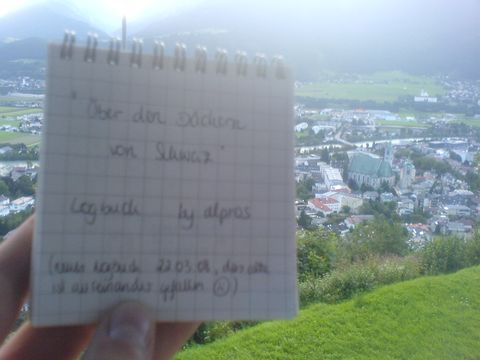 "Über den Dächern
von Schwaz"
Logbuch by alpros
(neues Logbuch 22.03.08, das alte
ist auseinander gefallen ☹)